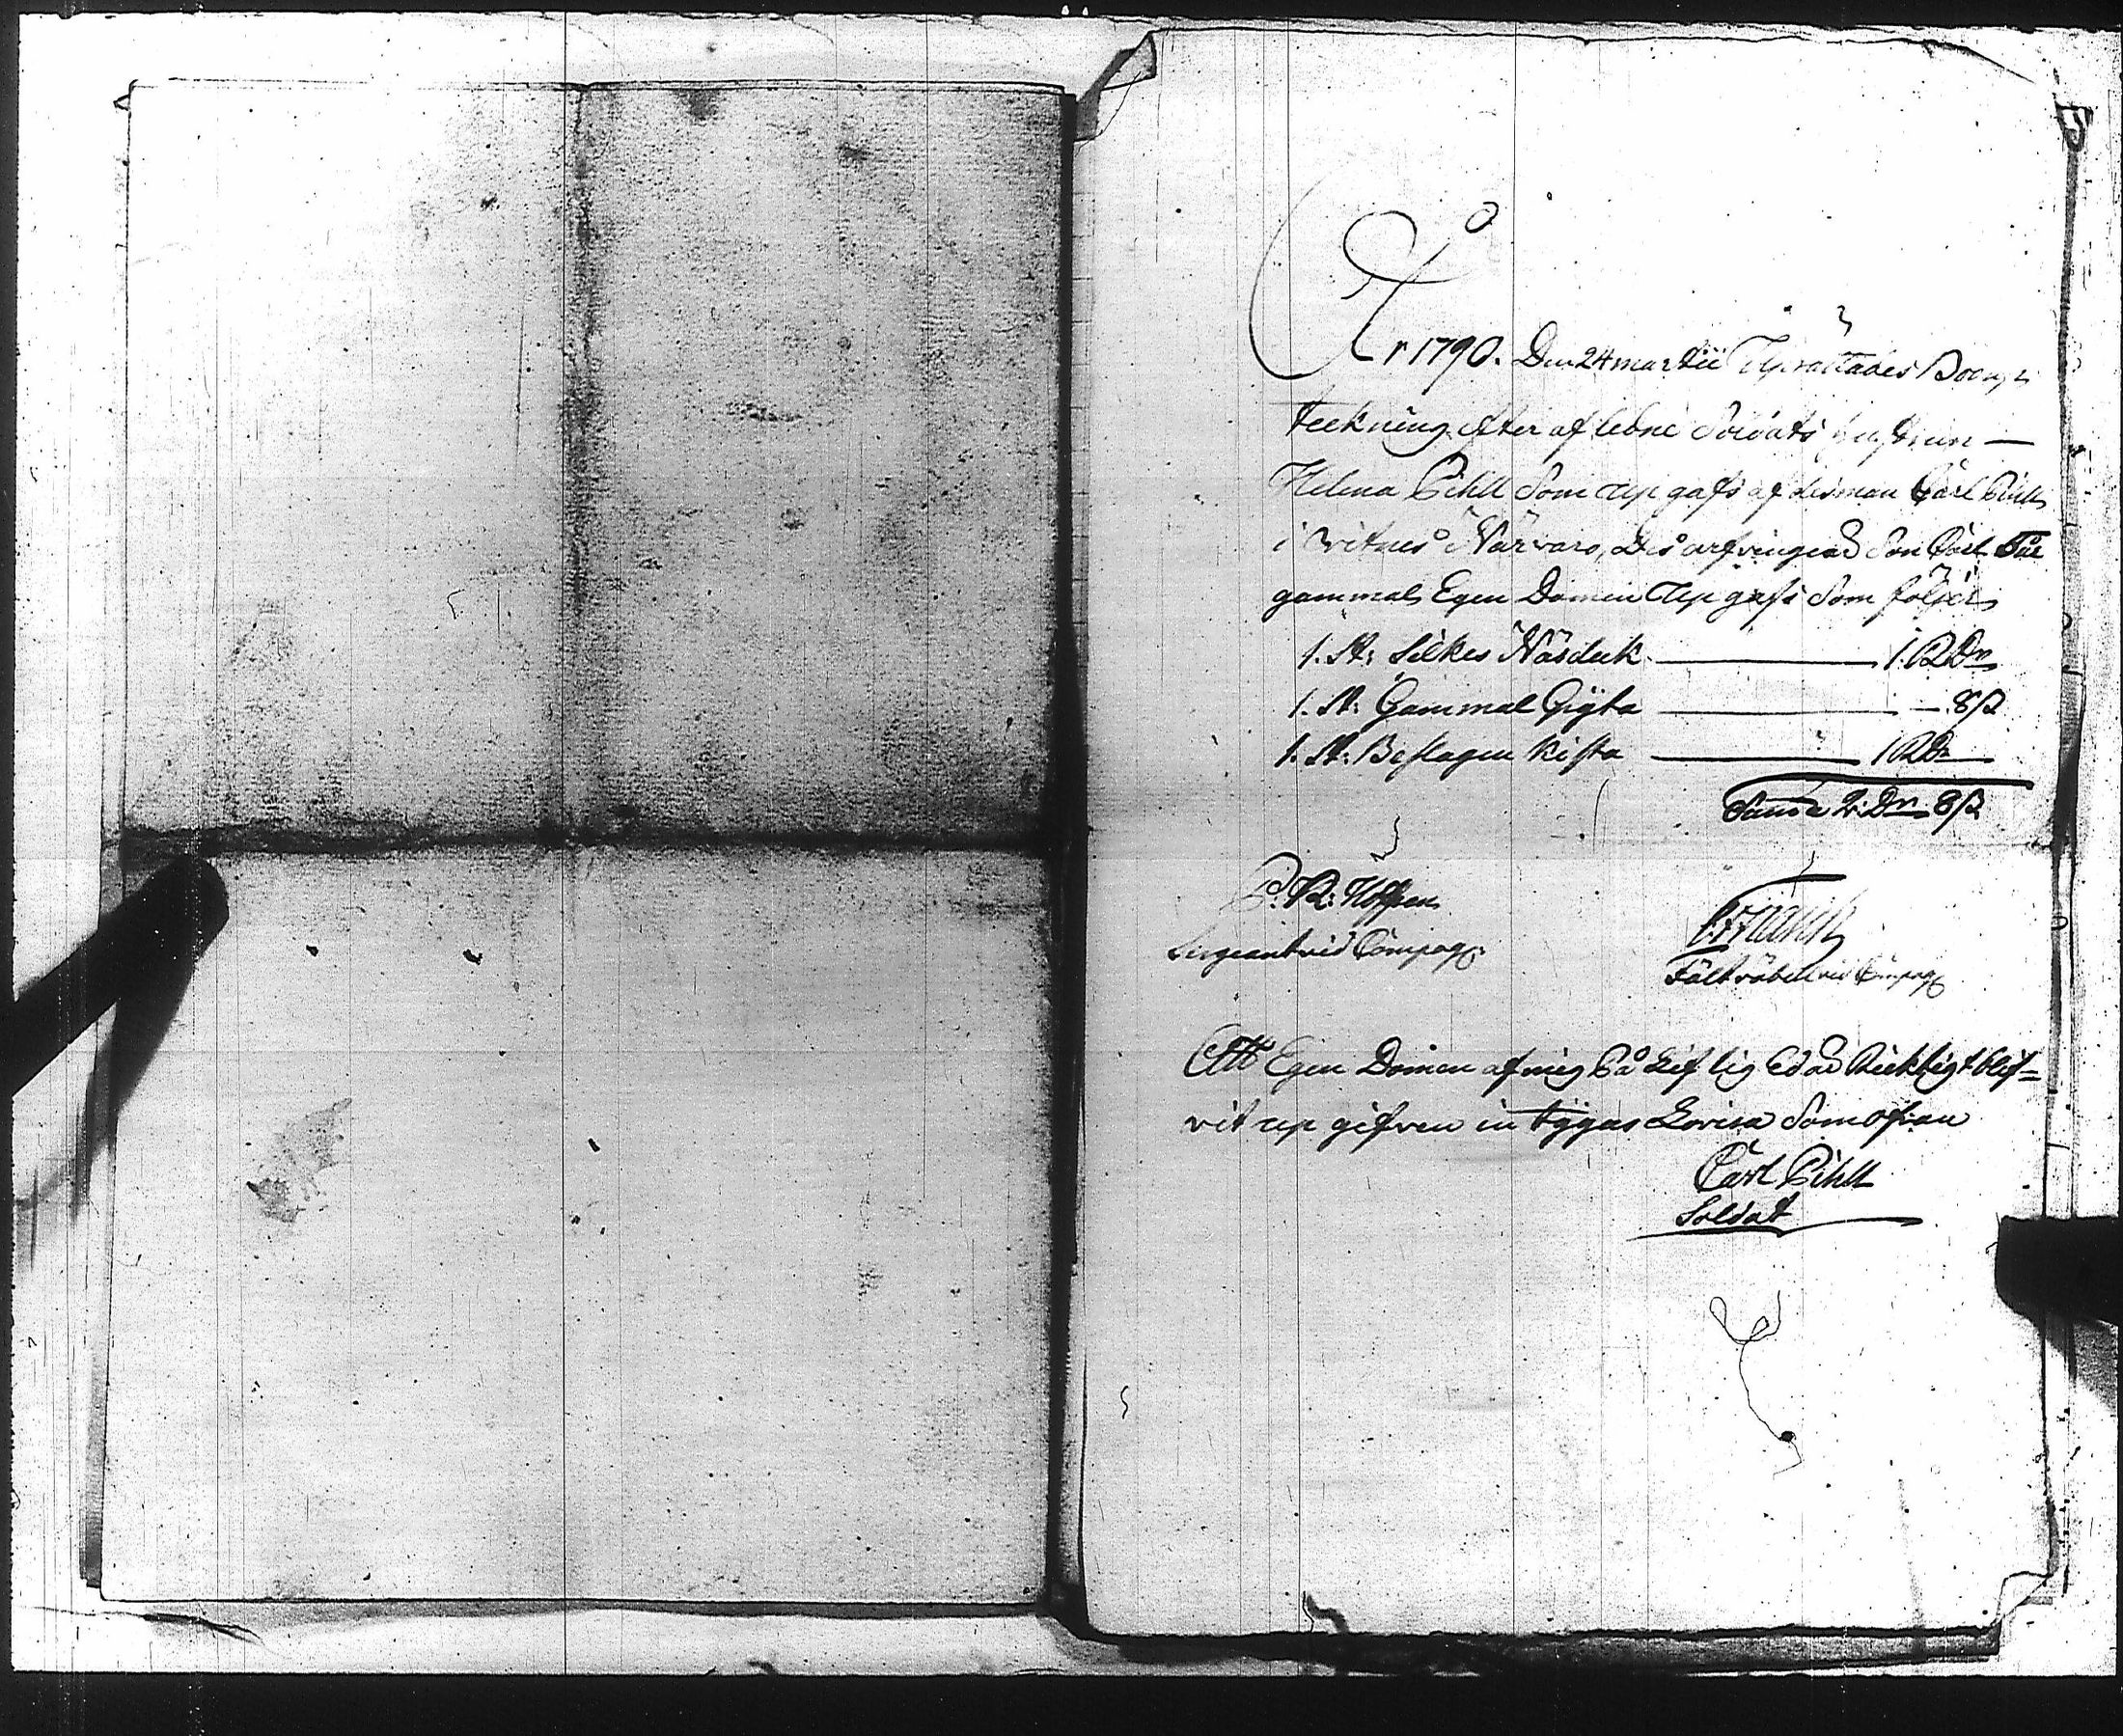 År 1790. Den 24 martii Uprättades Boup
teckning efter aflebne Soldats hustrun —
Helena Pihll Som up gafs af desman Carl Pihll
i witnes Närvaro, des arfvingear Son Carl
gammal, Egen Domen Up gafs Som följer,
1. St: Silkes Näsduk — 1. RDr
1. St: Gammal Gryta — 8 ß
1. St: Beslagen kista — 1 RDr
Suma 2: Dr 8 ß
P. R: Hoffren
Sergeant vid Compag:
Fältväbell vid Compag
Att Egen Domen af mig På Lif lig Ed är Ricktigt blif=
vit up gifven in tÿgas Lovisa Som ofvan
Carl Pihll
Soldat